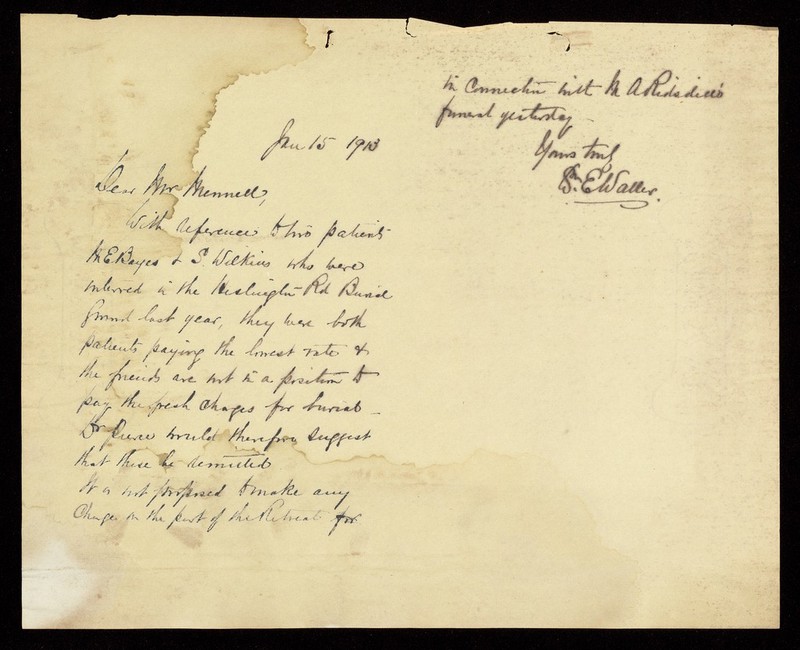 Jan 15 1913
Dear Mr Mennell,
With reference to two patients
M E Bayes & S. Wilkins who were
interred in the Heslington Rd Burial
Ground last year, they were both
patients paying the lowest rate &
the friends are not in a position to
pay the fresh charges for burial –
Dr Pierce would therefore suggest
that these be remitted.
It is not proposed to make any
Charge on the part of the Retreat for
in connection with M A Ridsdill's
funeral yesterday –
Yours truly
E Waller.